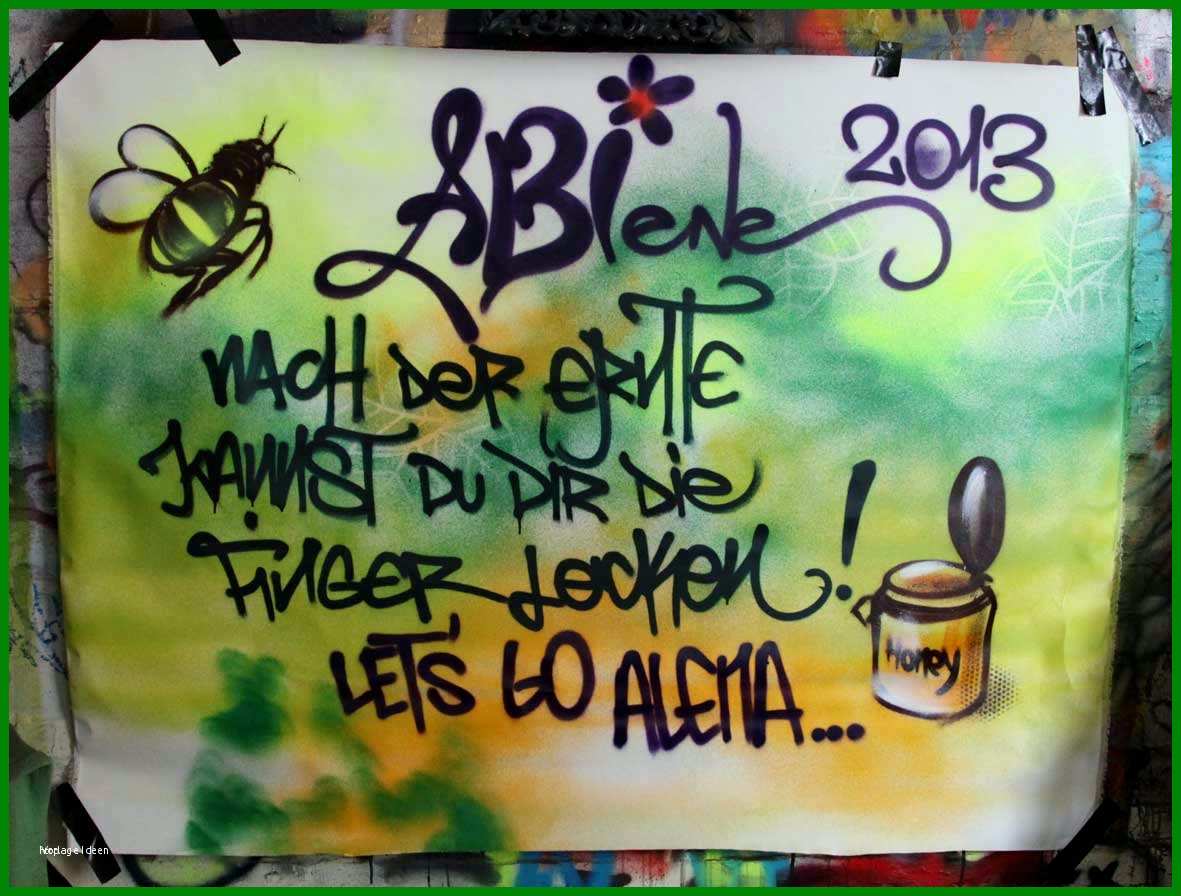 ABiene 2013
NACH DER ERNTE
KANNST DU DIR DIE
FINGER LECKEN!
Honey
LET'S GO ALENA...